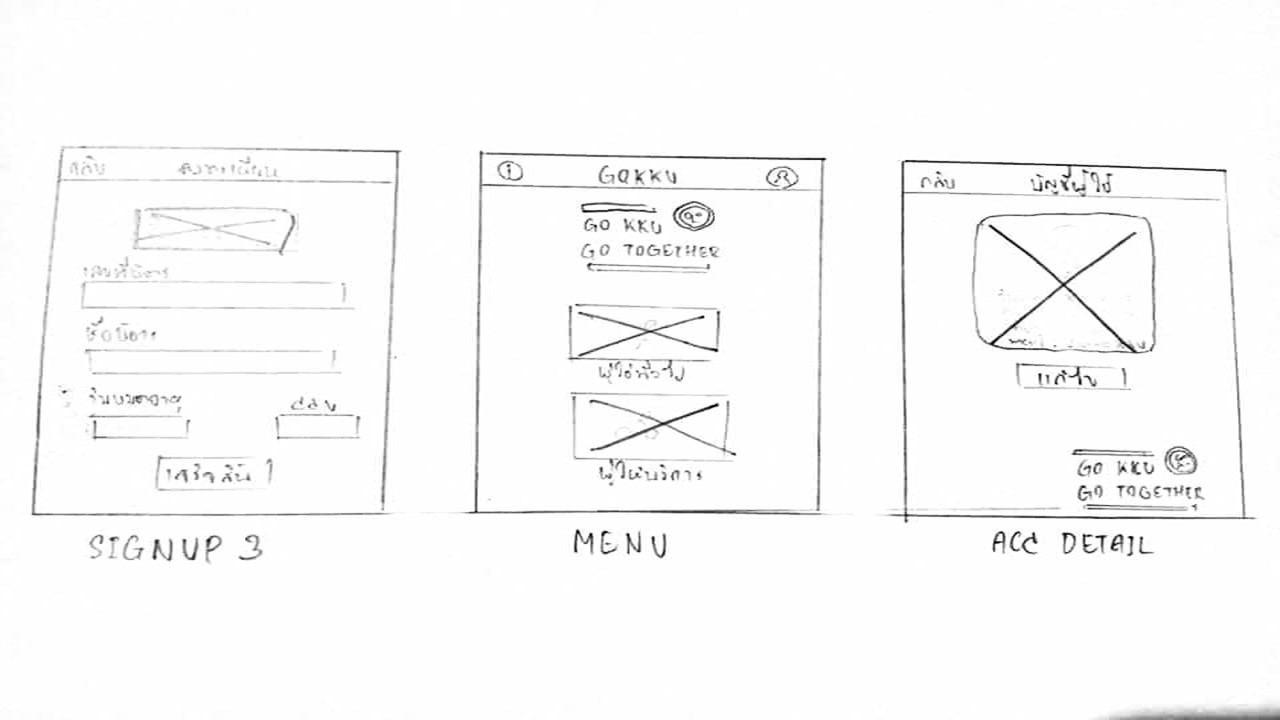 กลับ ลงทะเบียน
เลขที่บัตร
ชื่อบัตร
วันหมดอายุ
เสร็จสิ้น
SIGNUP 3
i GOKKU
GO KKU
GO TOGETHER
ผู้ใช้ทั่วไป
ผู้ให้บริการ
MENU
กลับ บัญชีผู้ใช้
แก้ไข
GO KKU
GO TOGETHER
ACC DETAIL